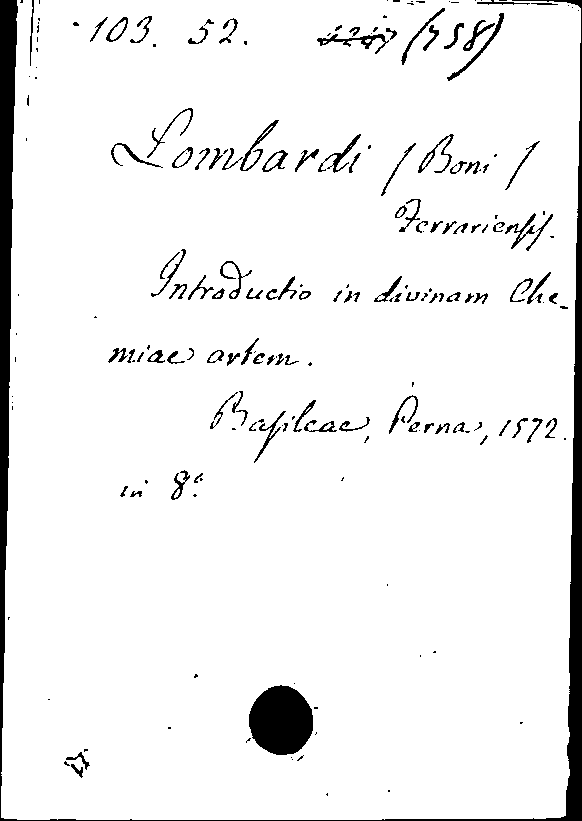 103. 52. (758)
Lombardi / Boni /
Ferrariensis.
Introductio in divinam Che-
miae artem.
Basileae, Perna, 1572.
in 8°